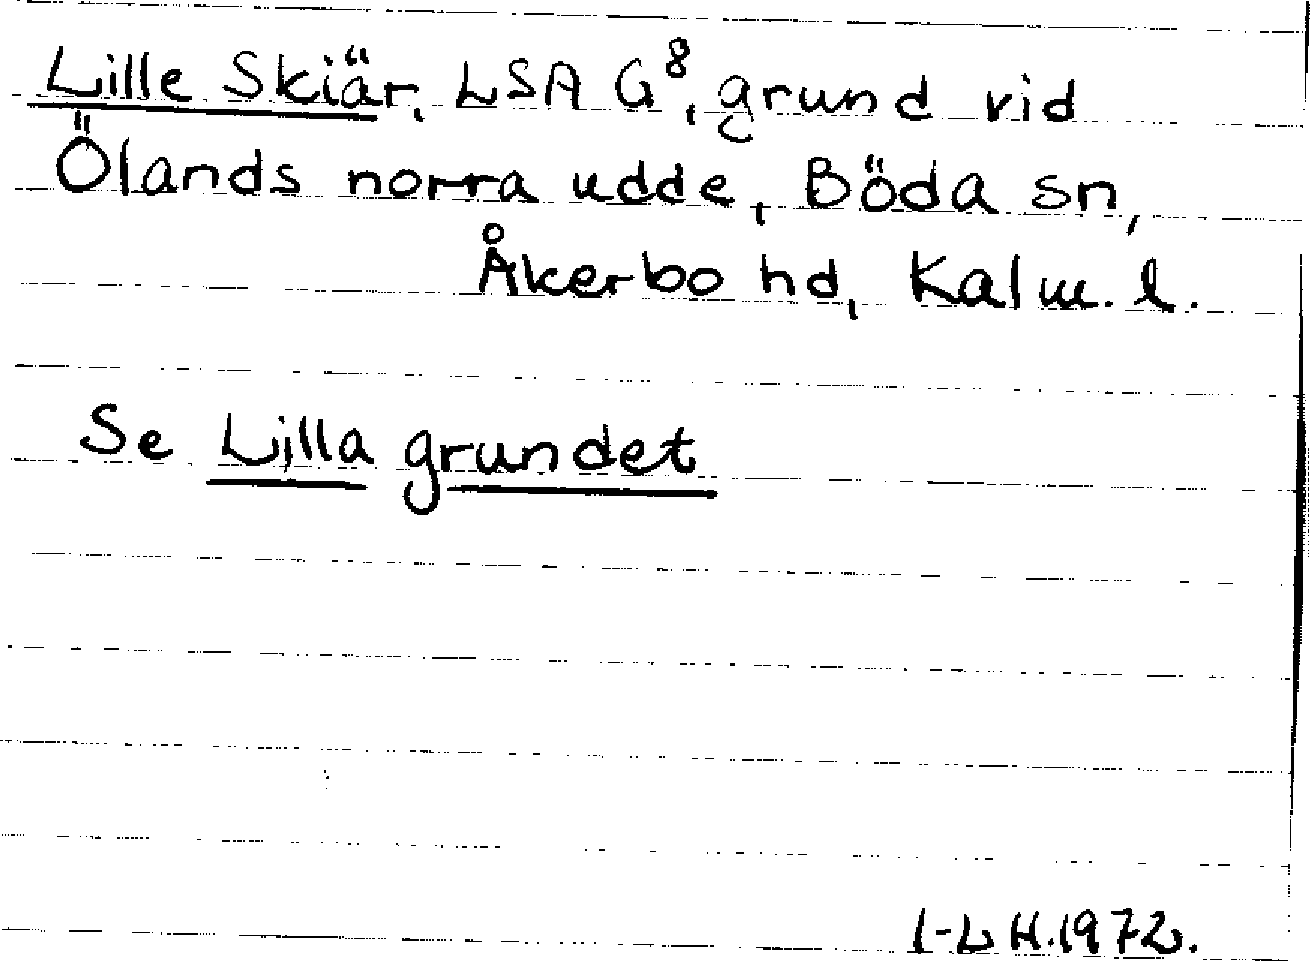 Lille Skiär, LSA G⁸, grund vid
Ölands norra udde, Böda sn,
Åkerbo hd, Kalm. l.
Se Lilla grundet
I-L H. 1972.